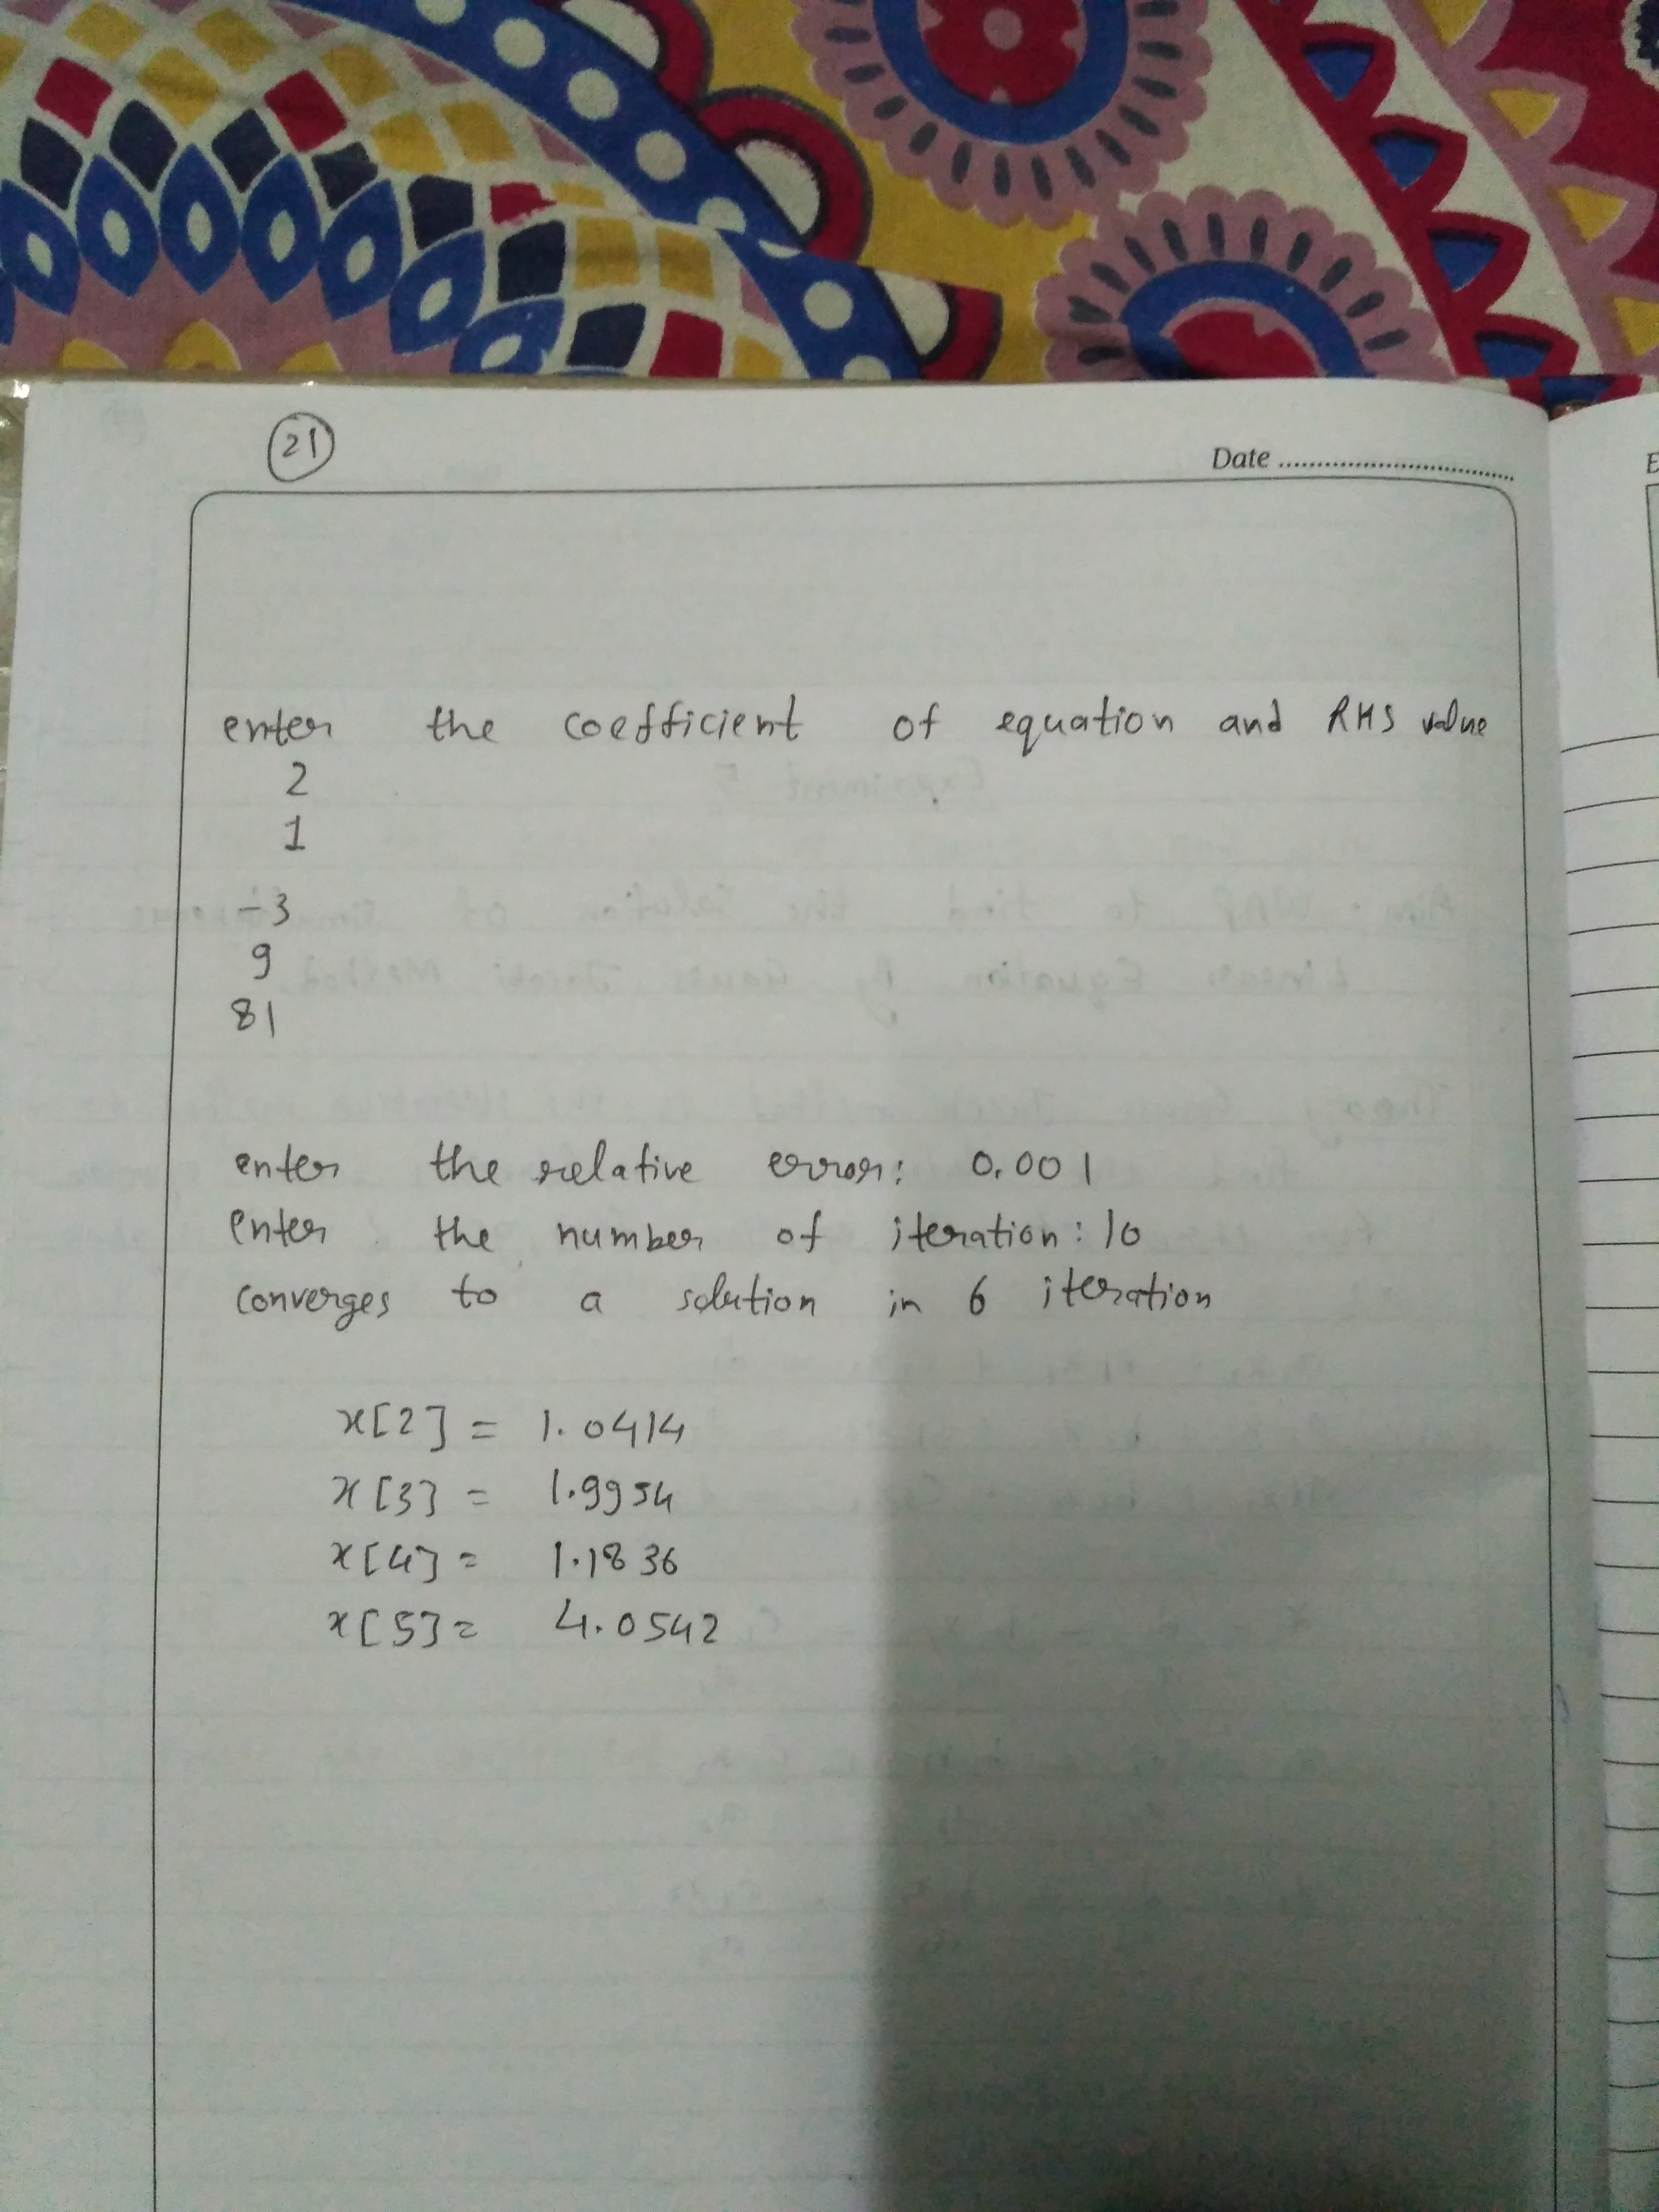 21
Date
enter the coefficient of equation and RHS value
2
1
-3
9
81
enter the relative error: 0.001
enter the number of iteration: 10
converges to a solution in 6 iteration
x[2] = 1.0414
x[3] = 1.9954
x[4] = 1.1836
x[5] = 4.0542